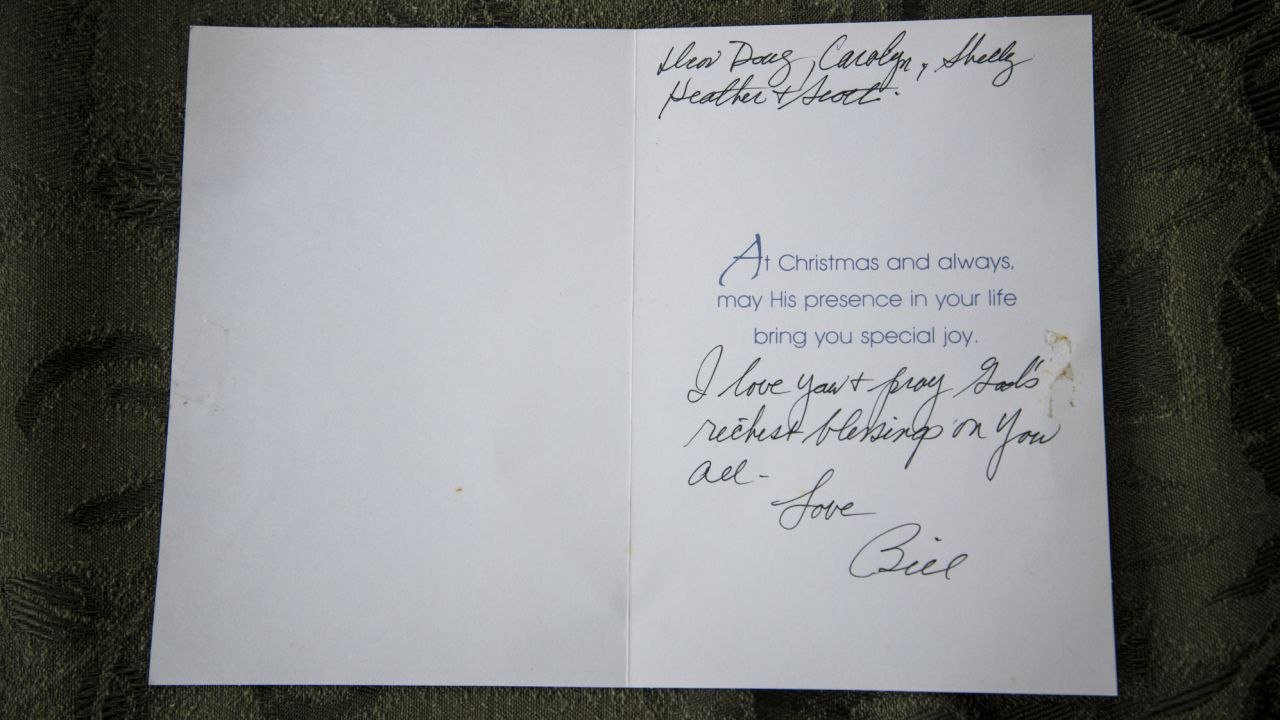 Dear Doug, Carolyn, Shelly
Heather + Scott.
At Christmas and always,
may His presence in your life
bring you special joy.
I love you + pray God's
richest blessings on you
all -
Love
Bill